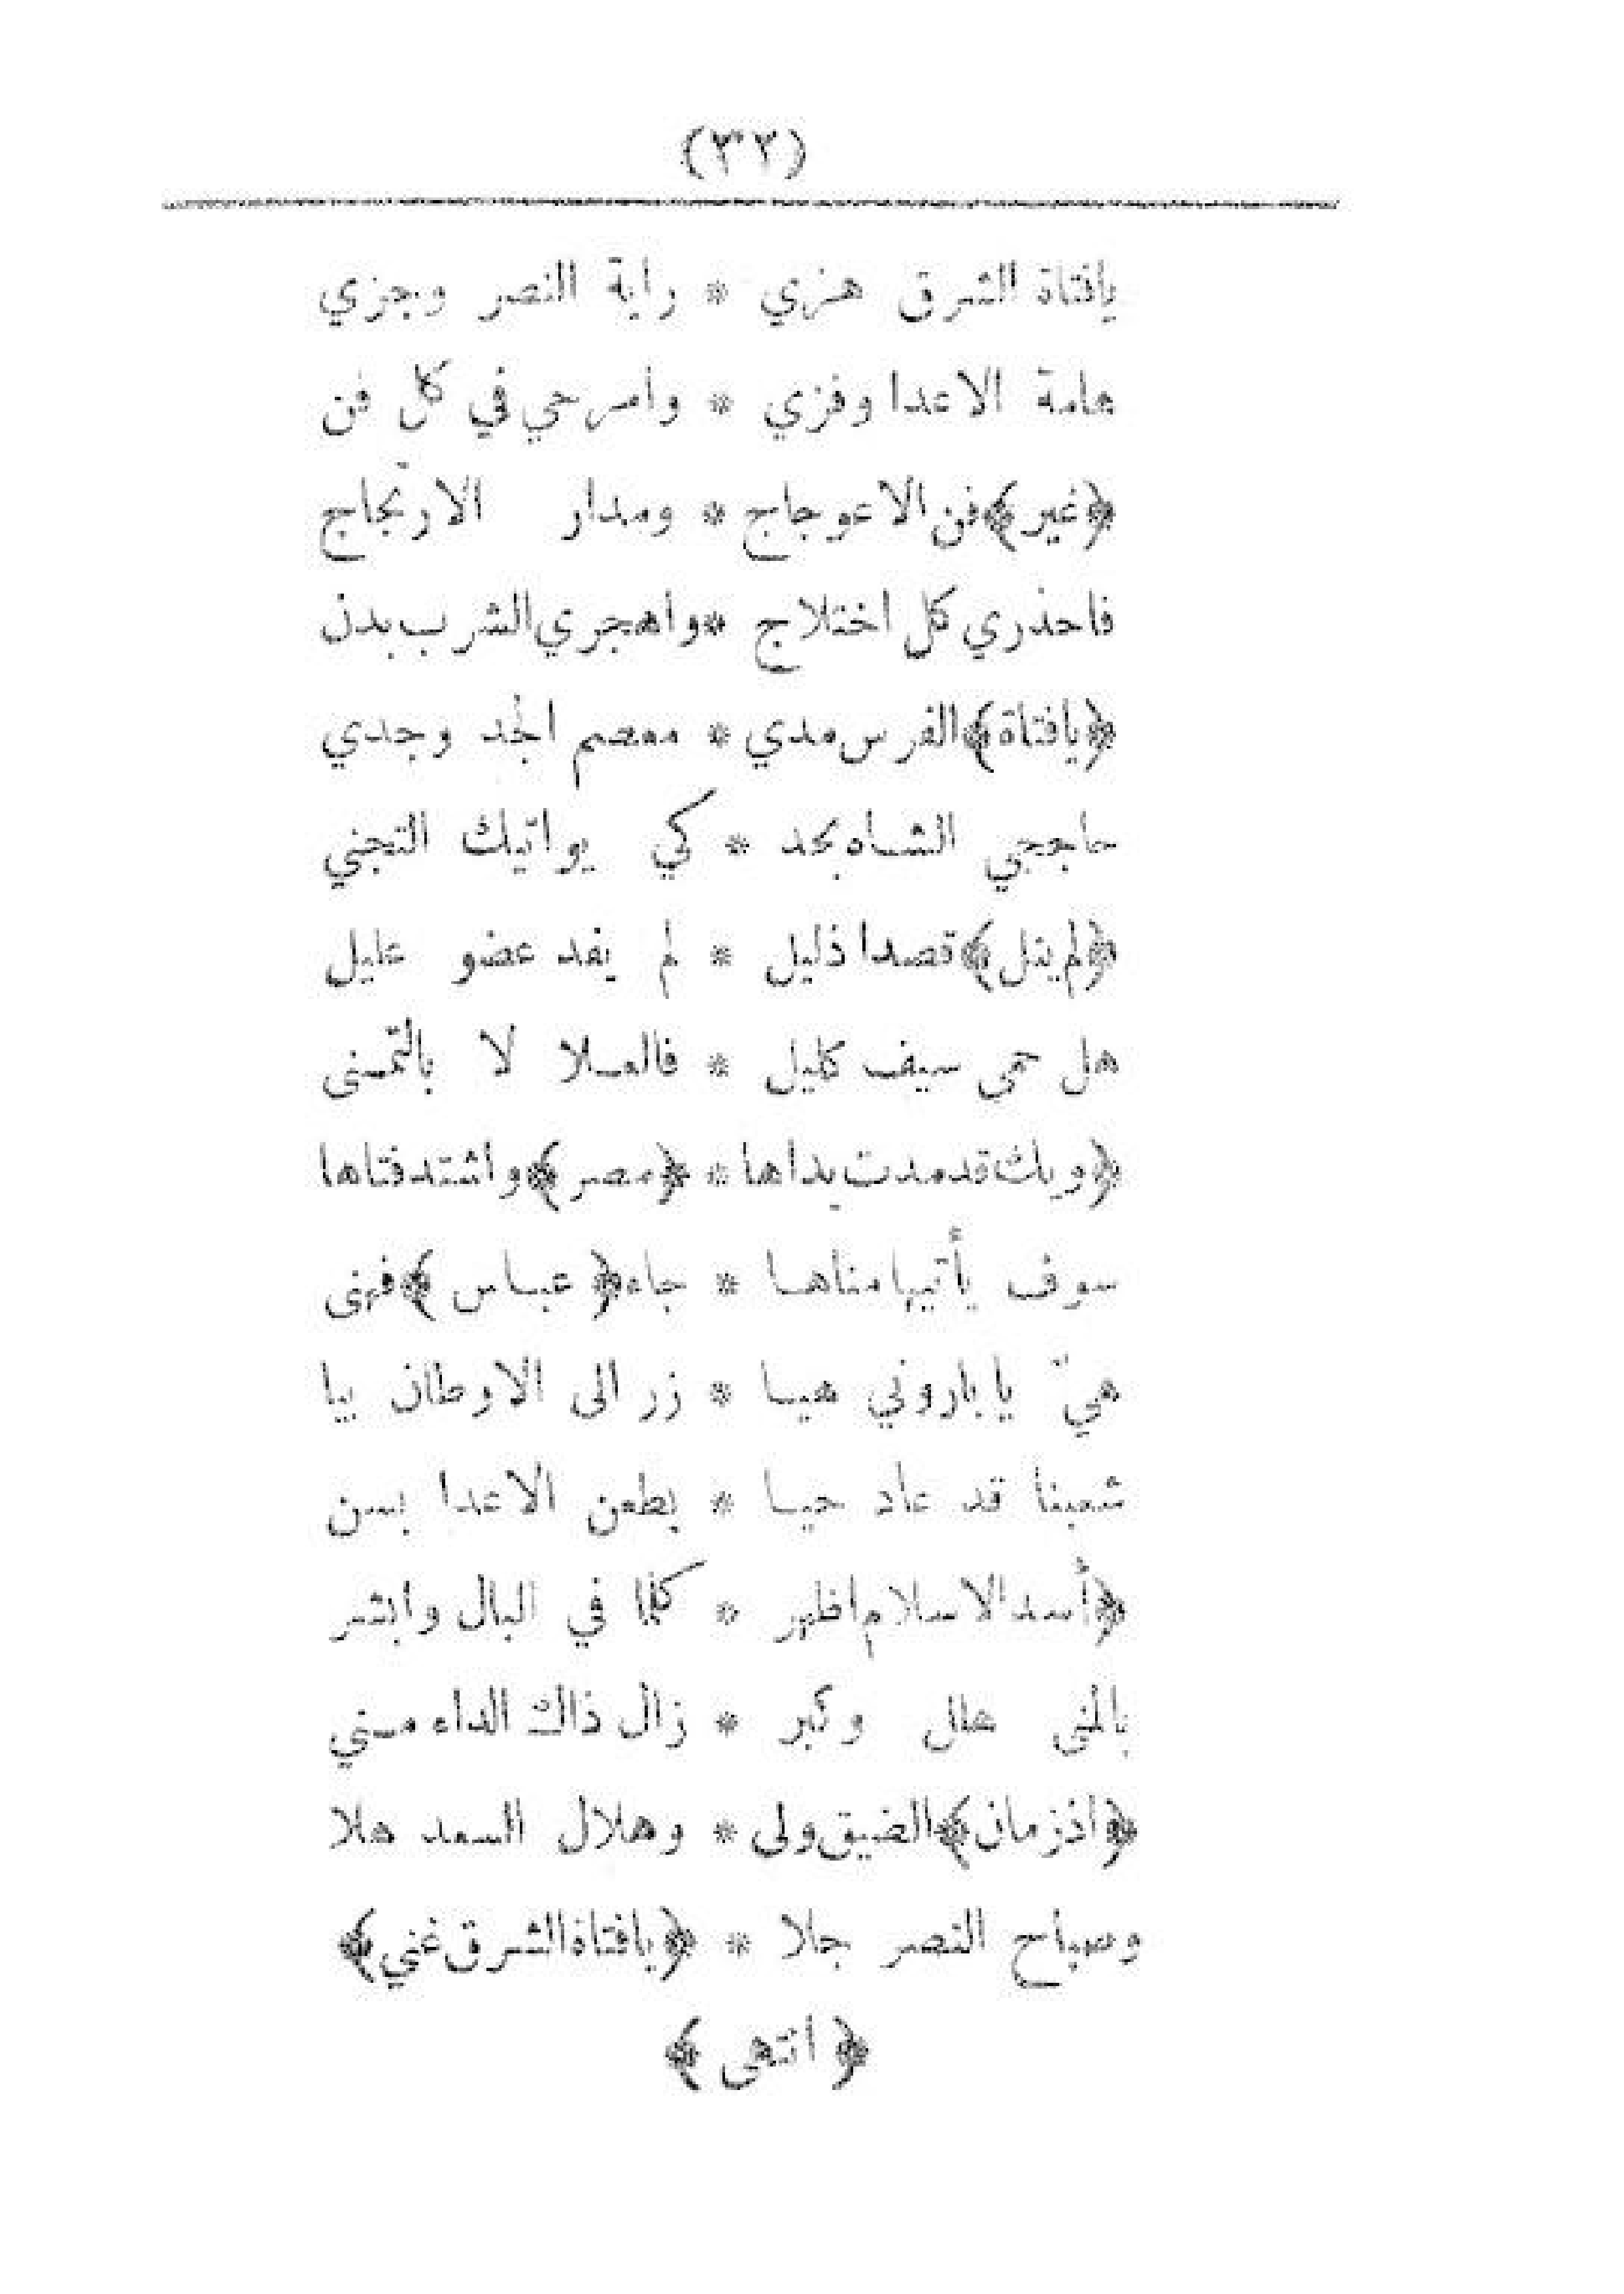 (٣٢)
يافتاة الشرق هزي * راية النصر وجزي
هامة الاعدا وفزي * وامرحي في كل فن
﴿غير﴾ فن الاعوجاج * ومدار الارتجاج
فاحذري كل اختلاج * واهجري الشرب بدن
﴿يافتاة﴾ الفرس مدي * معصم الجد وجدي
حاججي الشاه بحد * كي يواتيك التجني
﴿لم ينل﴾ قصدا ذليل * لم يفد عضو عليل
هل حمى سيف كليل * فالعلا لا بالتمنى
﴿ويك قد مدت يداها * ﴿مصر﴾ واشتد فتاها
سوف يأتيها مناها * جاء ﴿عباس﴾ فهنى
هيّ يا باروني هيا * زر الى الاوطان بيا
شعبنا قد عاد حيا * يطعن الاعدا بسن
﴿أسد الاسلام اظهر * كلما في البال وابشر
بالمنى هلل وكبر * زال ذاك الداء مني
﴿واذ زمان﴾ الضيق ولى * وهلال السعد هلا
وصباح النصر جلا * ﴿يافتاة الشرق غني﴾
﴿انتهى﴾